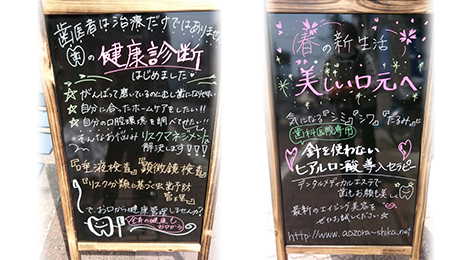 歯医者は治療だけではありません
歯の健康診断
はじめました
☆がんばって磨いているのに虫歯になりやすい
☆自分に合ったホームケアをしたい!!
☆自分の口腔環境を調べてみたい!!
そんなお悩みリスクマネジメント
解決します!!!
『唾液検査』『顕微鏡検査』
『リスク分類に基づく虫歯予防
でお口から健康管理しませんか?
全身の健康も
お口から
春の新生活
美しい口元へ
気になる『シミ』『シワ』『たるみ』に
歯科医院専用
針を使わない
ヒアルロン酸導入セラピー
デンタルメディカルエステで
歯もお顔も美しく
最新のエイジング美容を
ぜひお試しください☆
http://www.aozora-shika.net